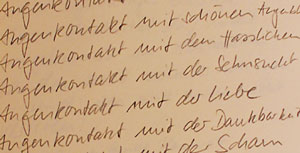 Augenkontakt mit schönen
Augenkontakt mit dem Hässlichen
Augenkontakt mit der Sehnsucht
Augenkontakt mit der Liebe
Augenkontakt mit der Dankbarkeit
mit der Scham